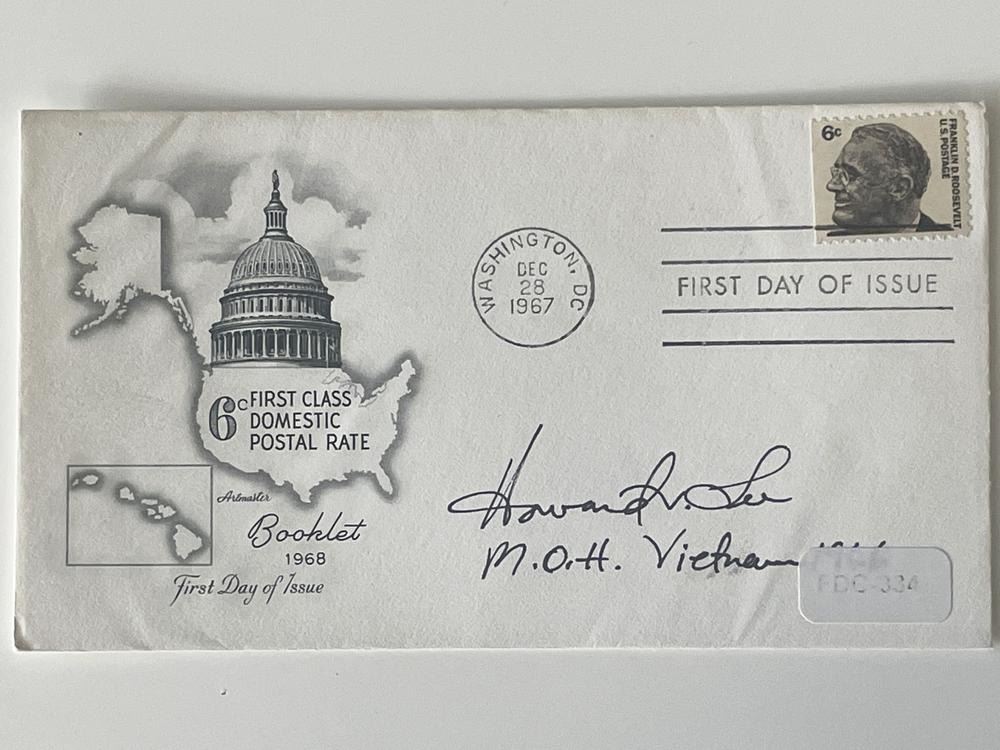 6c
FRANKLIN D. ROOSEVELT
U.S. POSTAGE
WASHINGTON, DC
DEC
28
1967
FIRST DAY OF ISSUE
6c FIRST CLASS
DOMESTIC
POSTAL RATE
Artmaster
Booklet
1968
First Day of Issue
Howard V. Lee
M.O.H. Vietnam
FDC-334